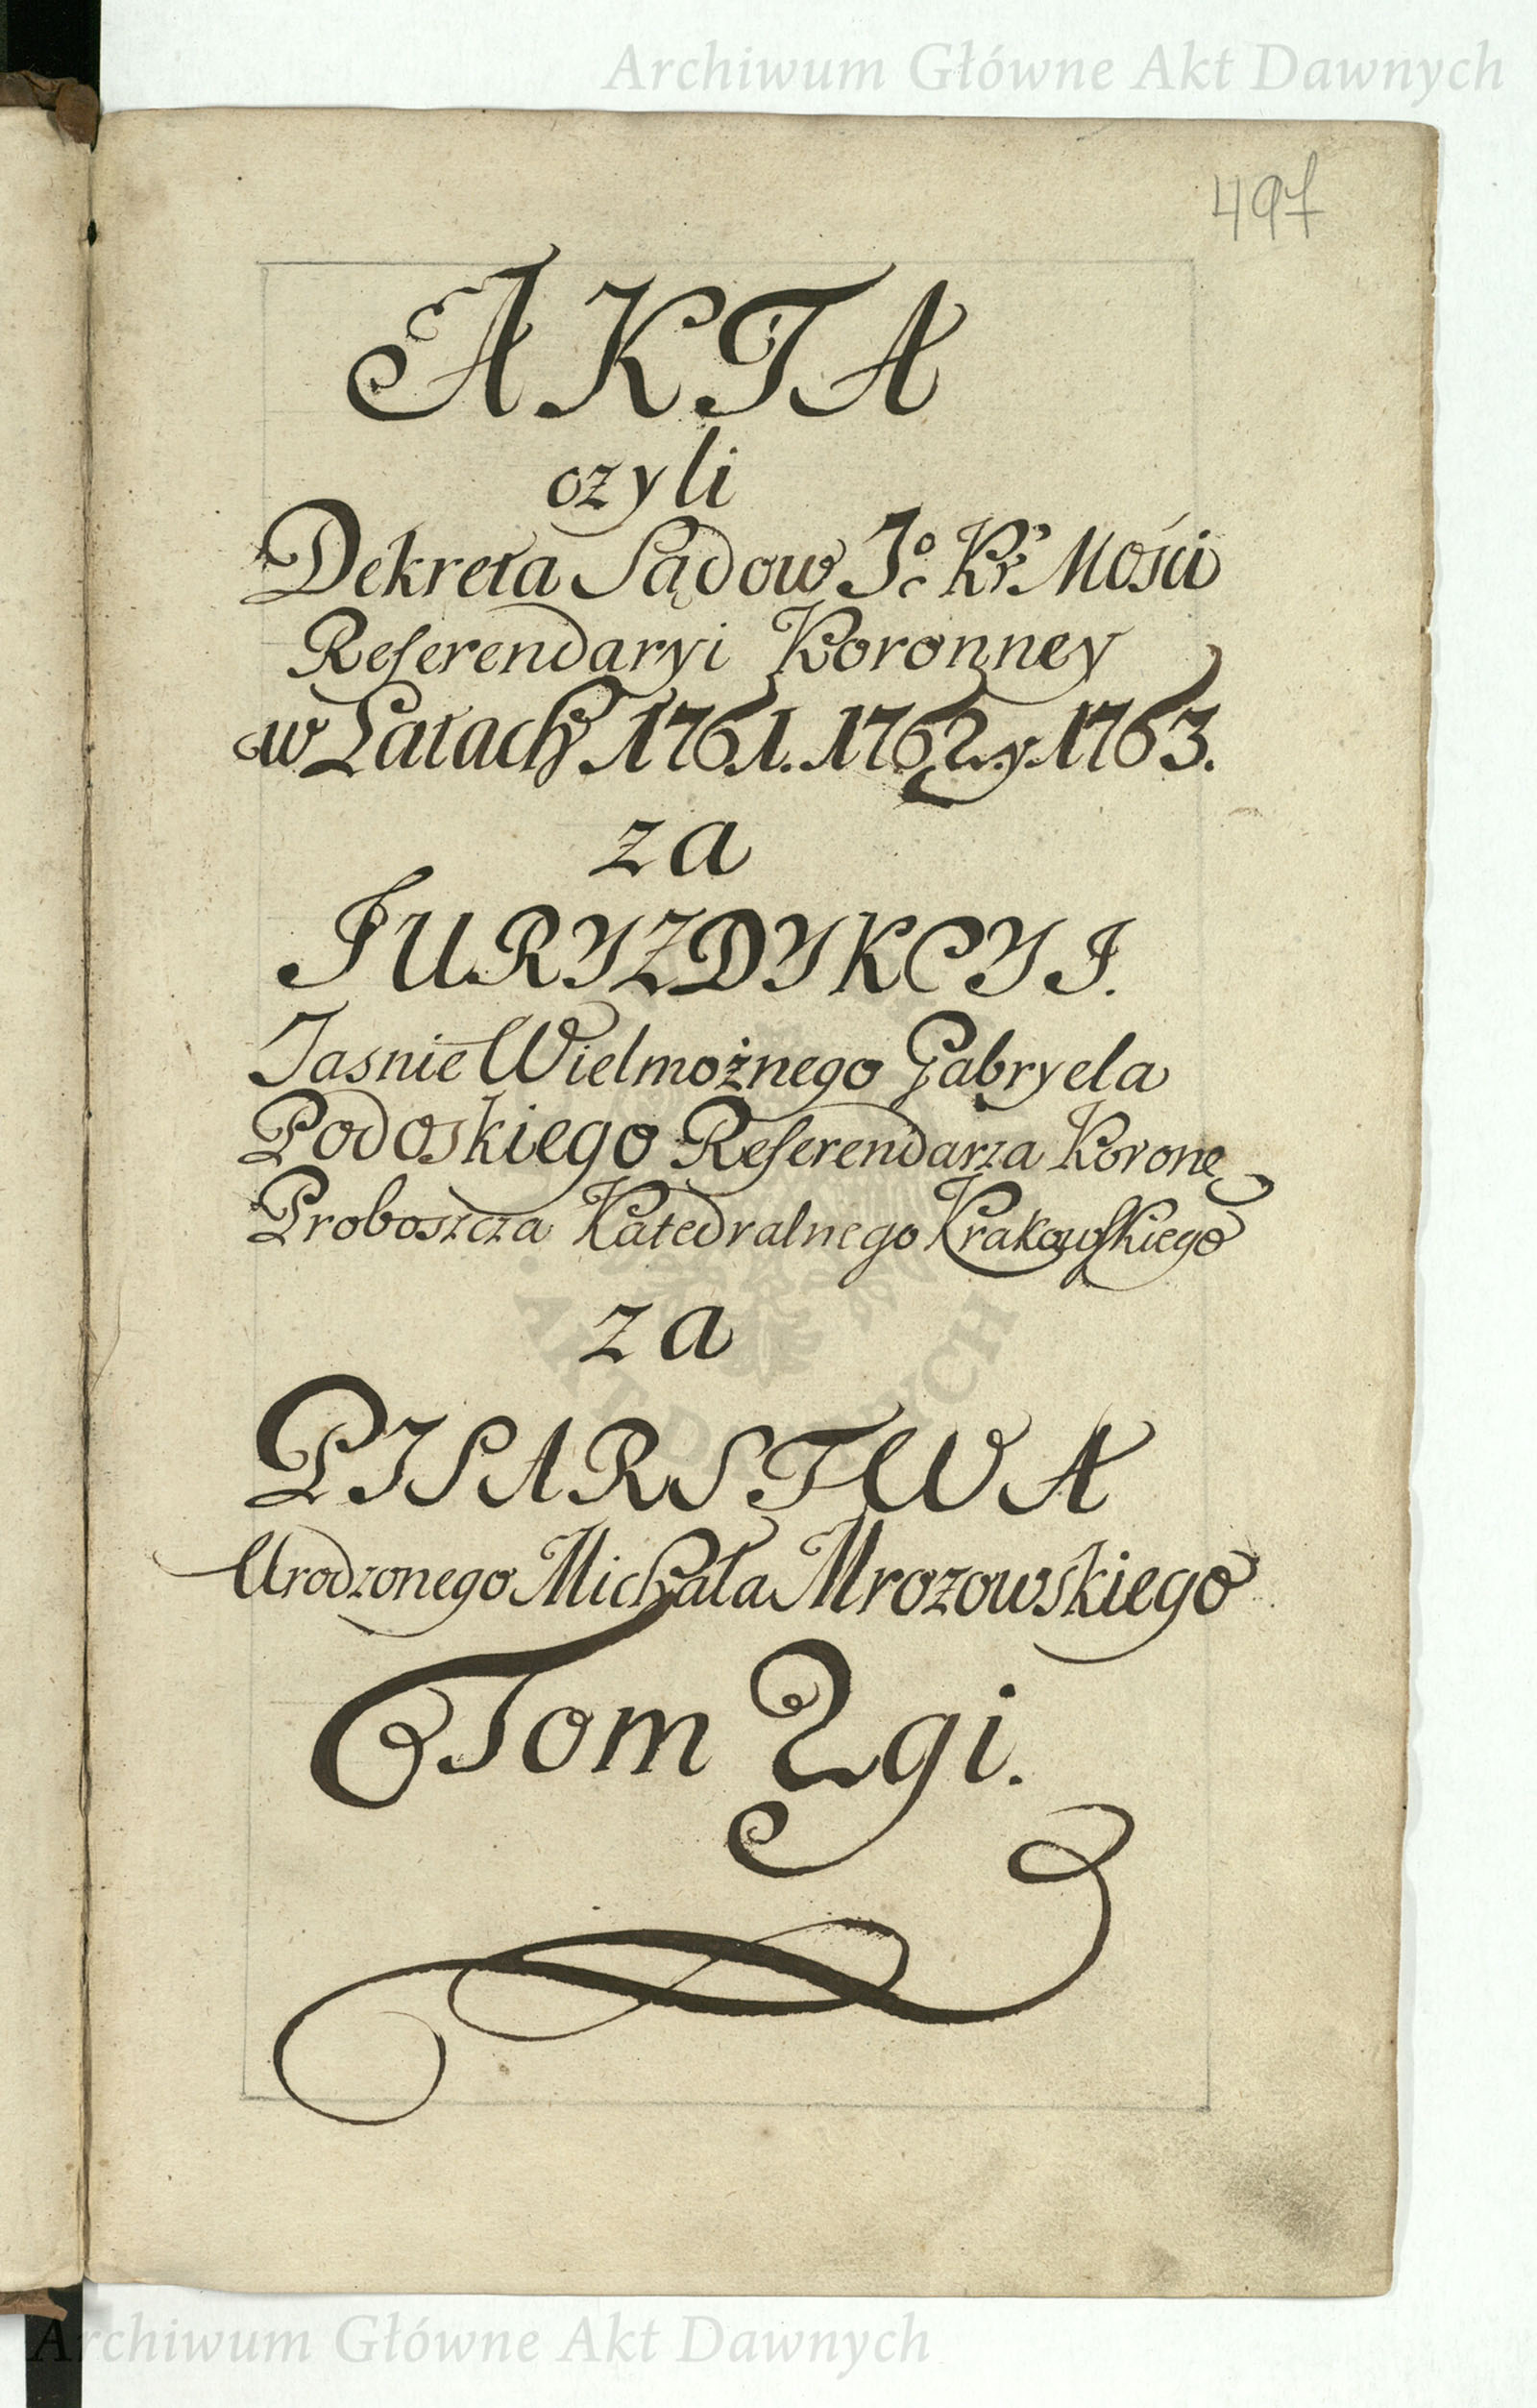 Archiwum Główne Akt Dawnych
497
AKTA
czyli
Dekreta Sądow Jo. Kr. Mości
Referendaryi Koronney
w Latach 1761. 1762. y. 1763.
za
JURYZDYKCYI.
Jasnie Wielmożnego Gabryela
Podoskiego Referendarza Korone
Proboszcza Katedralnego Krakowskiego
za
PISARSTWA
Urodzonego Michała Mrozowskiego
Tom 2gi.
Archiwum Główne Akt Dawnych